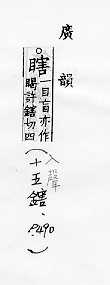 廣韻
○瞎一目盲亦作
䁍許鎋切四
(入聲十五鎋.P.490)